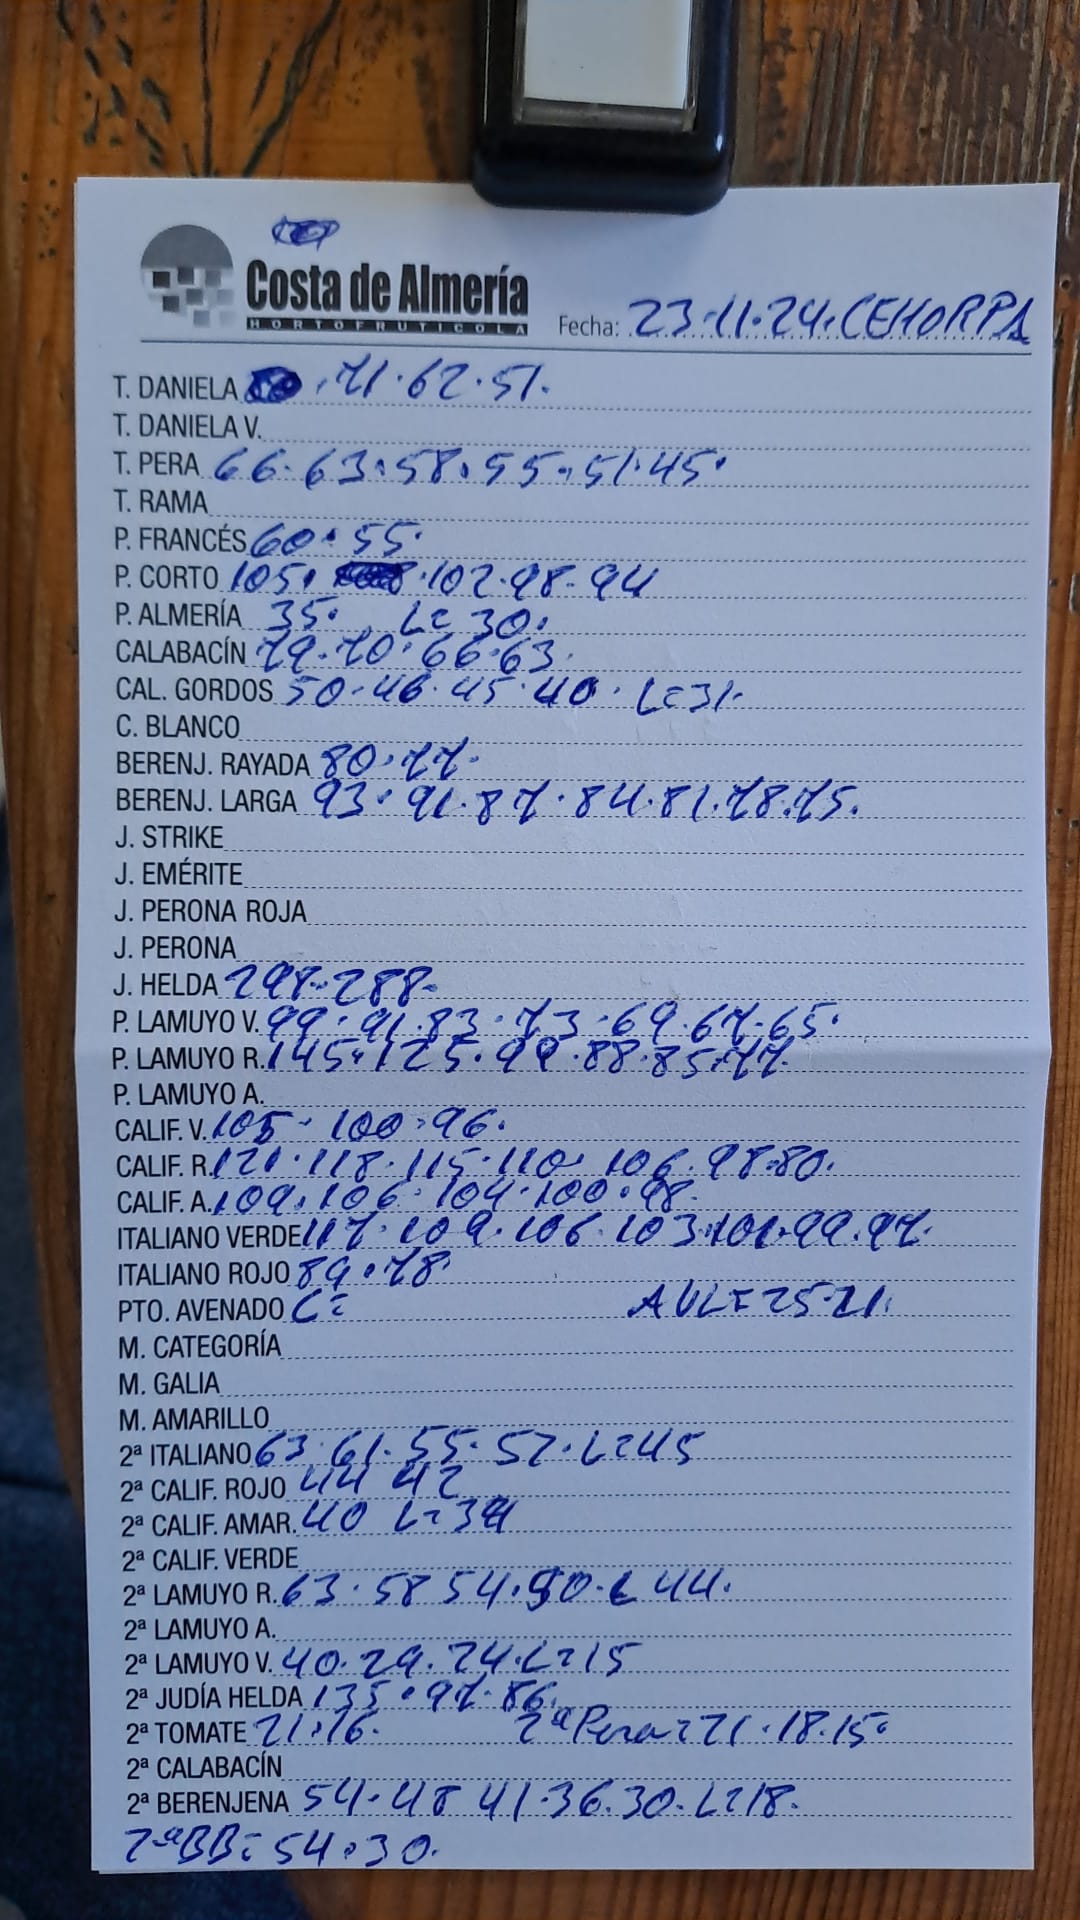 Costa de Almería
HORTOFRUTICOLA
Fecha: 23.11.24.CEHORPA
T. DANIELA . 71.62.51.
T. DANIELA V.
T. PERA 66.63.58.55.51.45.
T. RAMA
P. FRANCÉS 60.55.
P. CORTO 105. .102.98.94
P. ALMERÍA 35. L=30.
CALABACÍN 79.70.66.63.
CAL. GORDOS 50.46.45.40. L=31.
C. BLANCO
BERENJ. RAYADA 80.77.
BERENJ. LARGA 93.91.87.84.81.78.75.
J. STRIKE
J. EMÉRITE
J. PERONA ROJA
J. PERONA
J. HELDA 298.288.
P. LAMUYO V. 99.91.83.73.69.67.65.
P. LAMUYO R. 145.125.99.88.85.77.
P. LAMUYO A.
CALIF. V. 105.100.96.
CALIF. R. 121.118.115.110.106.98.80.
CALIF. A. 109.106.104.100.98.
ITALIANO VERDE 117.109.106.103.101.99.97.
ITALIANO ROJO 89.78.
PTO. AVENADO C= AVL=25.21.
M. CATEGORÍA
M. GALIA
M. AMARILLO
2ª ITALIANO 63.61.55.52.L=45
2ª CALIF. ROJO 44 42
2ª CALIF. AMAR. 40 L=
2ª CALIF. VERDE
2ª LAMUYO R. 63.58 54.50.L 44.
2ª LAMUYO A.
2ª LAMUYO V. 40.29.24.L=15
2ª JUDÍA HELDA 135.97.86.
2ª TOMATE 21.16. 2ª Pera=21.18.15.
2ª CALABACÍN
2ª BERENJENA 54.48 41.36.30.L=18.
2ªBB=54.30.